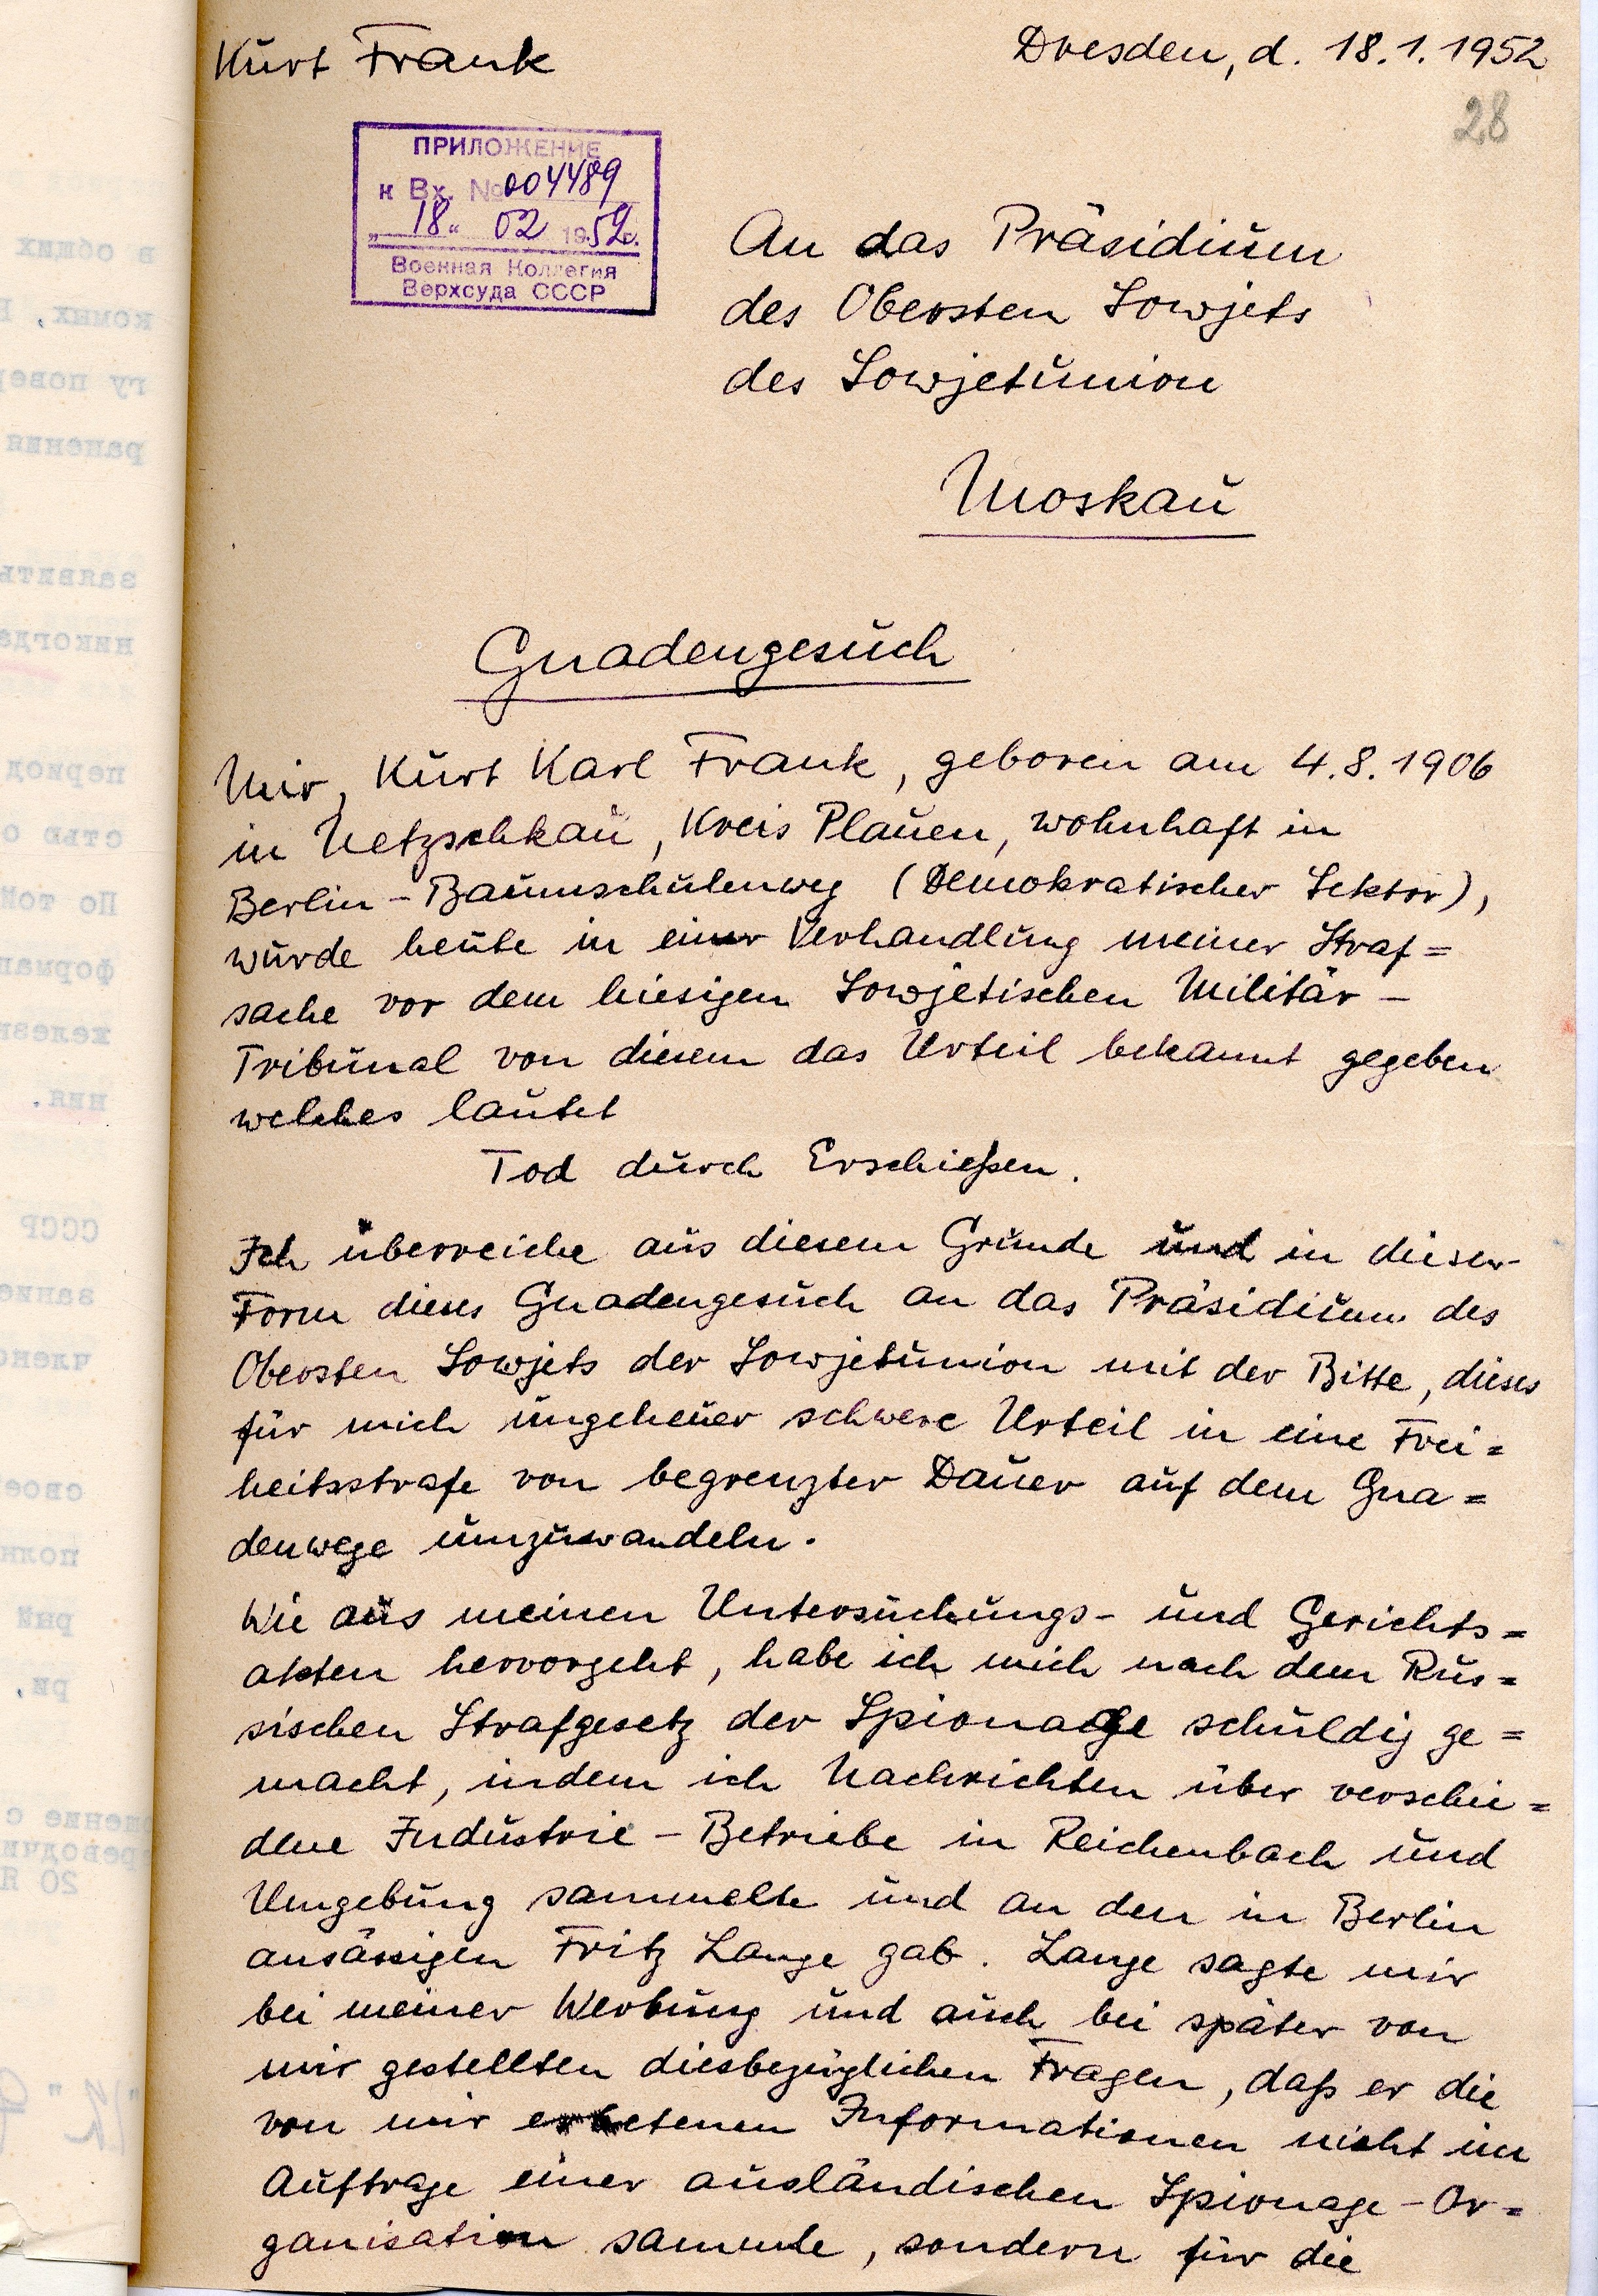 Kurt Frank
Dresden, d. 18.1.1952
28
ПРИЛОЖЕНИЕ
к Вх. № 004489
„18“ 02 1952г.
Военная Коллегия
Верхсуда СССР
An das Präsidium
des Obersten Sowjets
des Sowjetunion
Moskau
Gnadengesuch
Mir, Kurt Karl Frank, geboren am 4.8.1906
in Netzschkau, Kreis Plauen, wohnhaft in
Berlin-Baumschulenweg (Demokratischer Sektor),
wurde heute in einer Verhandlung meiner Straf=
sache vor dem hiesigen Sowjetischen Militär-
Tribunal von diesem das Urteil bekannt gegeben
welches lautet
Tod durch Erschießen.
Ich überreiche aus diesem Grunde und in dieser
Form dieses Gnadengesuch an das Präsidium des
Obersten Sowjets der Sowjetunion mit der Bitte, dieses
für mich ungeheuer schwere Urteil in eine Frei=
heitsstrafe von begrenzter Dauer auf dem Gna=
denwege umzuwandeln.
Wie aus meinen Untersuchungs- und Gerichts=
akten hervorgeht, habe ich mich nach dem Rus=
sischen Strafgesetz der Spionage schuldig ge=
macht, indem ich Nachrichten über verschie=
dene Industrie-Betriebe in Reichenbach und
Umgebung sammelte und an den in Berlin
ansässigen Fritz Lange gab. Lange sagte mir
bei meiner Werbung und auch bei später von
mir gestellten diesbezüglichen Fragen, daß er die
von mir erbetenen Informationen nicht im
Auftrage einer ausländischen Spionage-Or=
ganisation sammle, sondern für die
в общих
комых,
гу повер
ранения
заявить
никогда
период
стью о
По той
формац
железн
ния.
СССР
зание
члено
свое
полн
рый
ри,
реводчи
20 Я